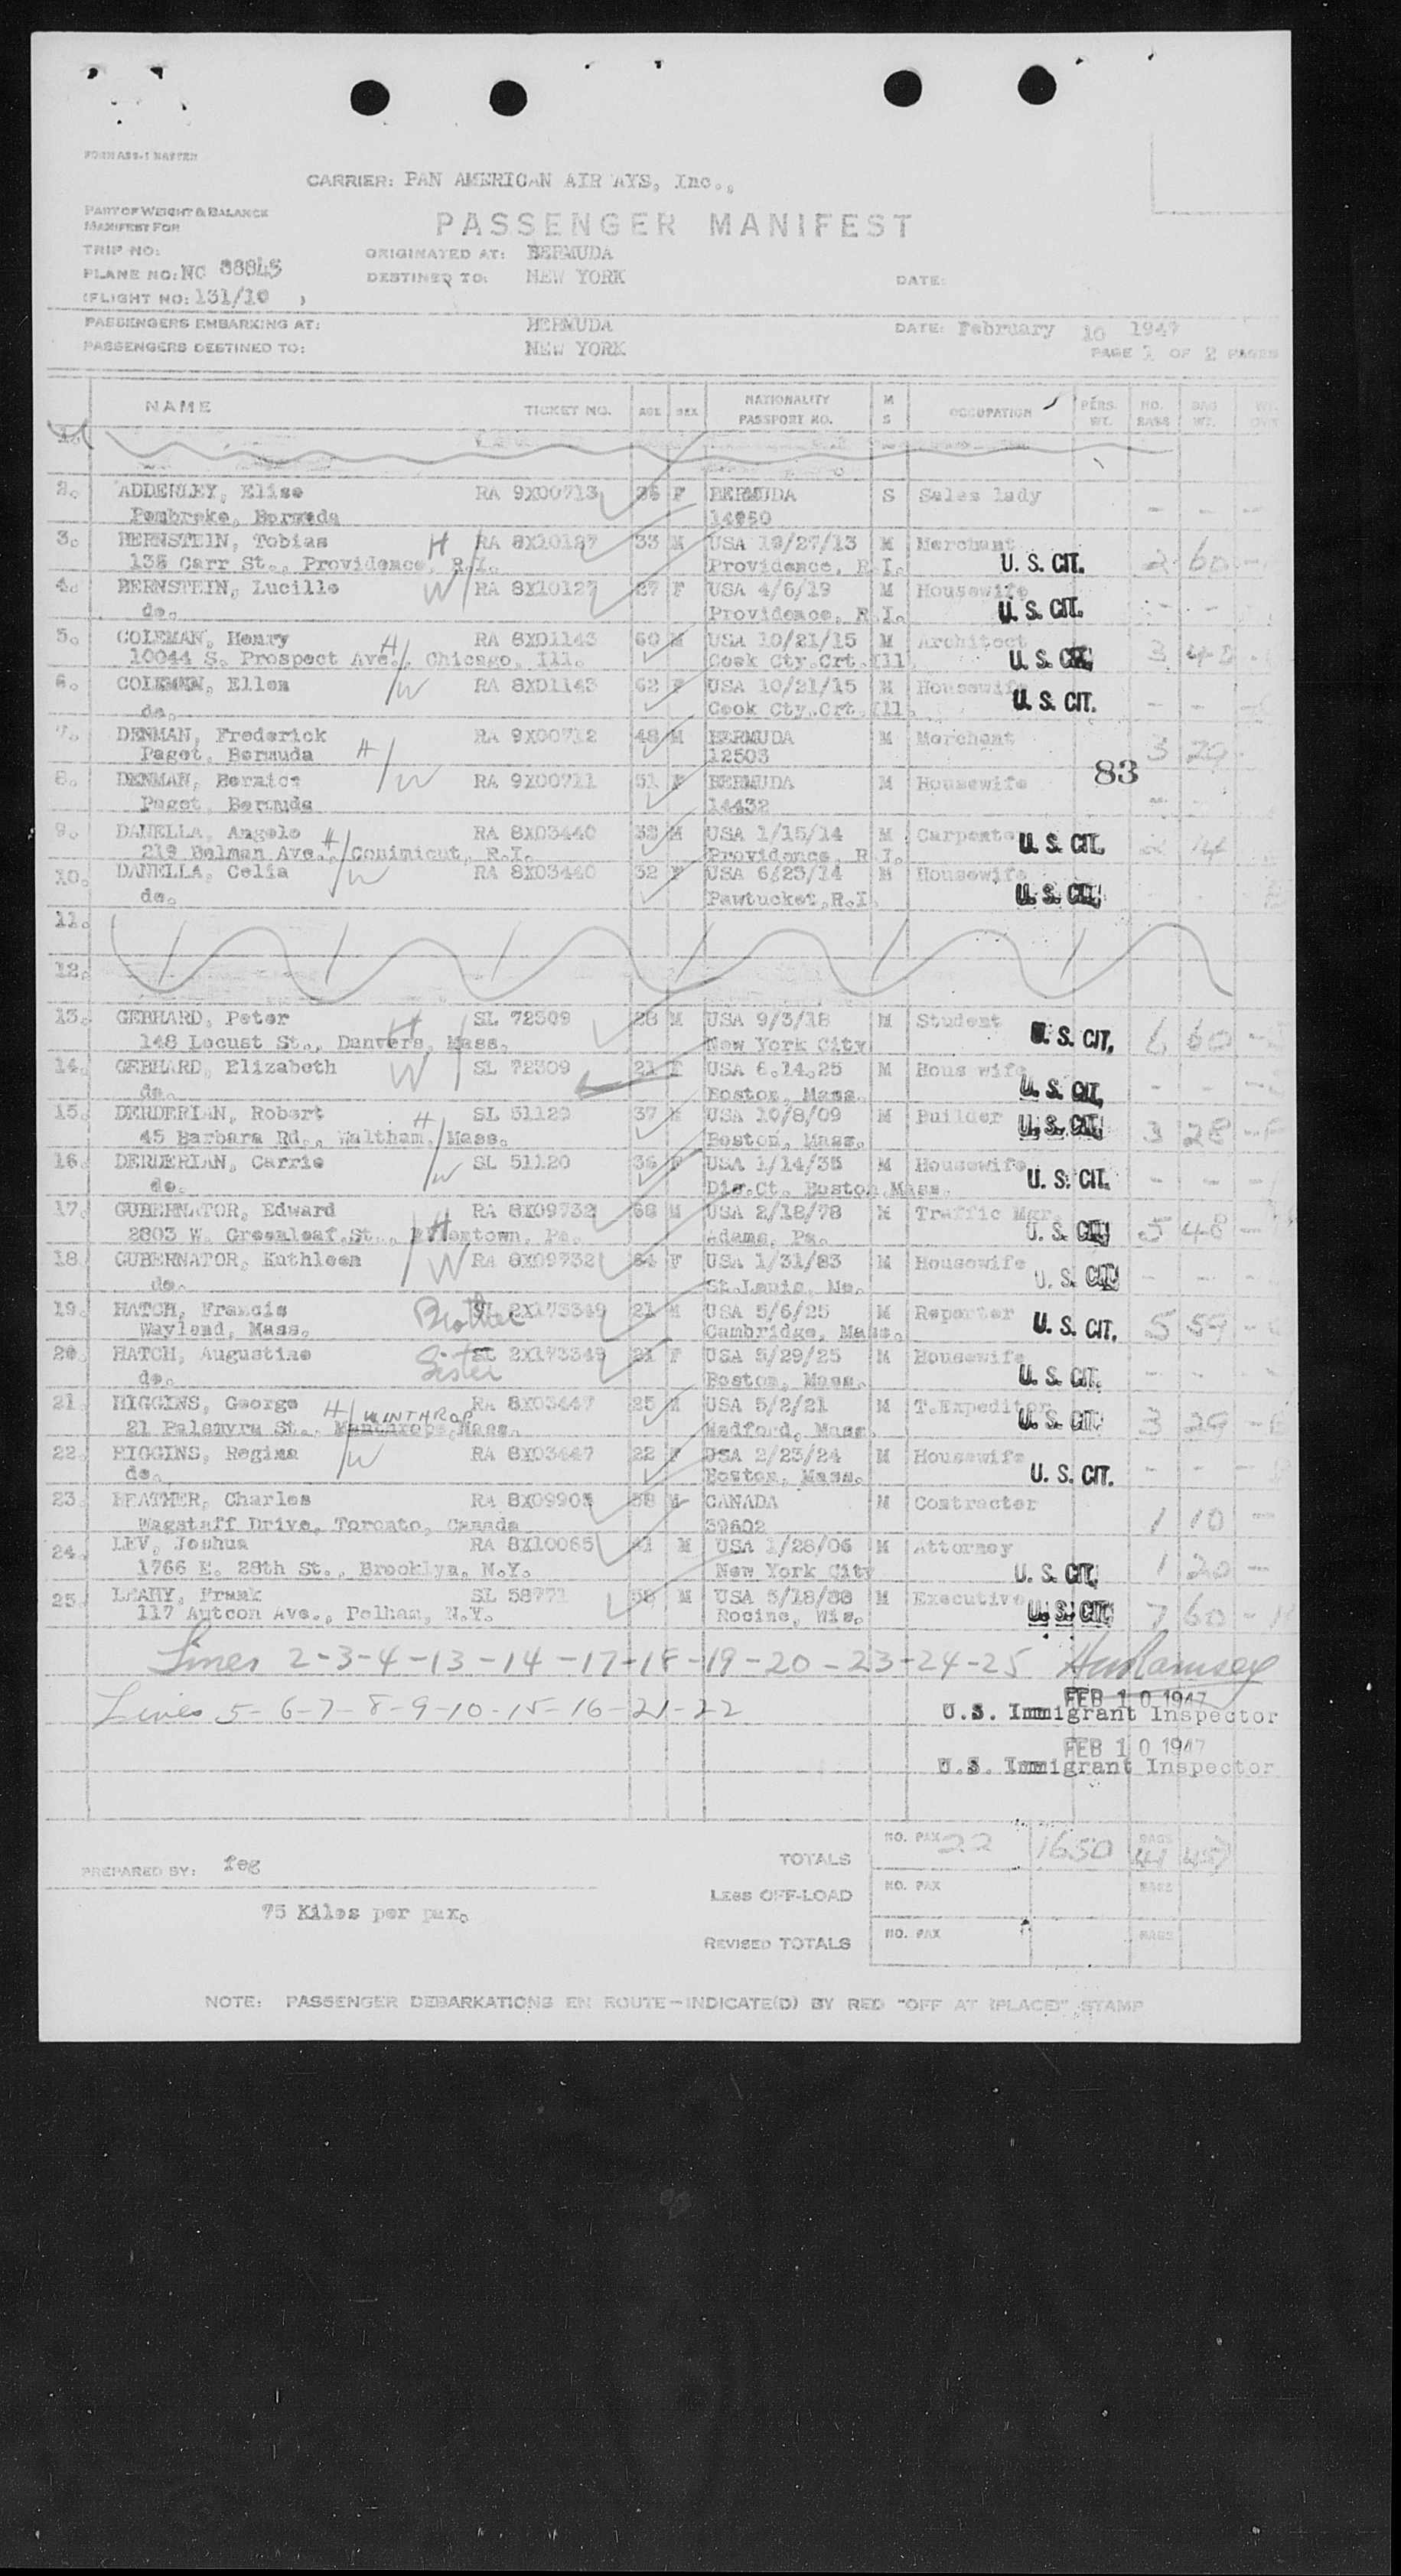 FORM ASS-1 MASTER
CARRIER: PAN AMERICAN AIR AYS, Inc.,
PART OF WEIGHT & BALANCE
MANIFEST FOR
PASSENGER MANIFEST
TRIP NO:
ORIGINATED AT: BERMUDA
PLANE NO: NC 88845
DESTINED TO: NEW YORK
DATE:
(FLIGHT NO: 131/10 )
PASSENGERS EMBARKING AT: BERMUDA DATE: February 10 1947
PASSENGERS DESTINED TO: NEW YORK
PAGE 1 OF 2 PAGES
NAME TICKET NO. AGE SEX NATIONALITY M OCCUPATION PERS. NO. BAG WT.
PASSPORT NO. S WT. BAGS WT.
2. ADDERLEY, Elise RA 9X00713 F BERMUDA S Sales lady - - -
Pembroke, Bermuda 14950
3. BERNSTEIN, Tobias H RA 8X10127 33 M USA M Merchant 2 60 -
135 Carr St., Providence, R.I. Providence, R.I. U. S. CIT.
4. BERNSTEIN, Lucille W RA 8X10127 27 F USA 4/6/19 M Housewife - -
do. Providence, R.I. U. S. CIT.
5. COLEMAN, Henry H RA 8X01143 60 M USA 10/21/15 M Architect 3
10044 S. Prospect Ave., Chicago, Ill. Cook Cty.Crt.Ill. U. S. CIT.
6. COLEMAN, Ellen W RA 8X01143 62 F USA 10/21/15 M Housewife - -
do. Cook Cty.Crt.Ill. U. S. CIT.
7. DENMAN, Frederick RA 9X00712 48 M BERMUDA M Merchant 3 29
Paget, Bermuda H 12503
83
8. DENMAN, Bernice W RA 9X00711 51 F BERMUDA M Housewife
Paget, Bermuda 14432
9. DANELLA, Angelo H RA 8X03440 32 M USA 1/15/14 M Carpenter 2 14
219 Belman Ave., Conimicut, R.I. Providence, R.I. U. S. CIT.
10. DANELLA, Celia W RA 8X03440 32 F USA 6/23/14 M Housewife
do. Pawtucket,R.I. U. S. CIT.
11.
12.
13. GEBHARD, Peter H SL 72309 28 M USA 9/3/18 M Student 6 60 -
148 Locust St., Danvers, Mass. New York City U. S. CIT.
14. GEBHARD, Elizabeth W SL 72309 21 F USA 6.14.25 M Hous wife - -
do. Boston, Mass. U. S. CIT.
15. DERDERIAN, Robert H SL 51120 37 M USA 10/8/09 M Builder 3 28 -
45 Barbara Rd., Waltham, Mass. Boston, Mass. U. S. CIT.
16. DERDERIAN, Carrie W SL 51120 36 F USA 1/14/35 M Housewife - - -
do. Dis.Ct. Boston Mass. U. S. CIT.
17. GUBERNATOR, Edward H RA 8X09732 68 M USA 2/18/78 M Traffic Mgr. 5 48 -
2803 W. Greenleaf.St., Adams, Pa. U. S. CIT.
18. GUBERNATOR, Kathleen W RA 8X09732 64 F USA 1/31/83 M Housewife - - -
do. St.Louis, Mo. U. S. CIT.
19. HATCH, Francis Brother SL 2X173349 21 M USA 5/6/25 M Reporter 5 59 -
Wayland, Mass. Cambridge, Mass. U. S. CIT.
20. HATCH, Augustine Sister SL 2X173349 21 F USA 5/29/25 M Housewife - - -
do. Boston, Mass. U. S. CIT.
21. HIGGINS, George H RA 8X03447 25 M USA 5/2/21 M T.Expeditor 3 29 -
21 Palmyra St., WINTHROP Mass. Medford, Mass. U. S. CIT.
22. HIGGINS, Regina W RA 8X03447 22 F USA 2/23/24 M Housewife - - -
do. Boston, Mass. U. S. CIT.
23. HEATHER, Charles RA 8X09905 58 M CANADA M Contractor 1 10 -
Wagstaff Drive, Toronto, Canada 39602
24. LEV, Joshua RA 8X10065 41 M USA 1/28/06 M Attorney 1 20 -
1766 E. 28th St., Brooklyn, N.Y. New York City U. S. CIT.
25. LEAHY, Frank SL 58771 58 M USA 5/18/88 M Executive 7 60 -
117 Autcon Ave., Pelham, N.Y. Rocine, Wis. U. S. CIT.
Lines 2-3-4-13-14-17-18-19-20-23-24-25 HMRamsey
FEB 10 1947
Lines 5-6-7-8-9-10-15-16-21-22 U.S. Immigrant Inspector
FEB 10 1947
U.S. Immigrant Inspector
PREPARED BY: feg TOTALS NO. PAX 22 1650 BAGS 41 457
LESS OFF-LOAD NO. PAX BAGS
75 Kilos per pax.
REVISED TOTALS NO. PAX BAGS
NOTE: PASSENGER DEBARKATIONS EN ROUTE-INDICATE(D) BY RED "OFF AT (PLACE)" STAMP